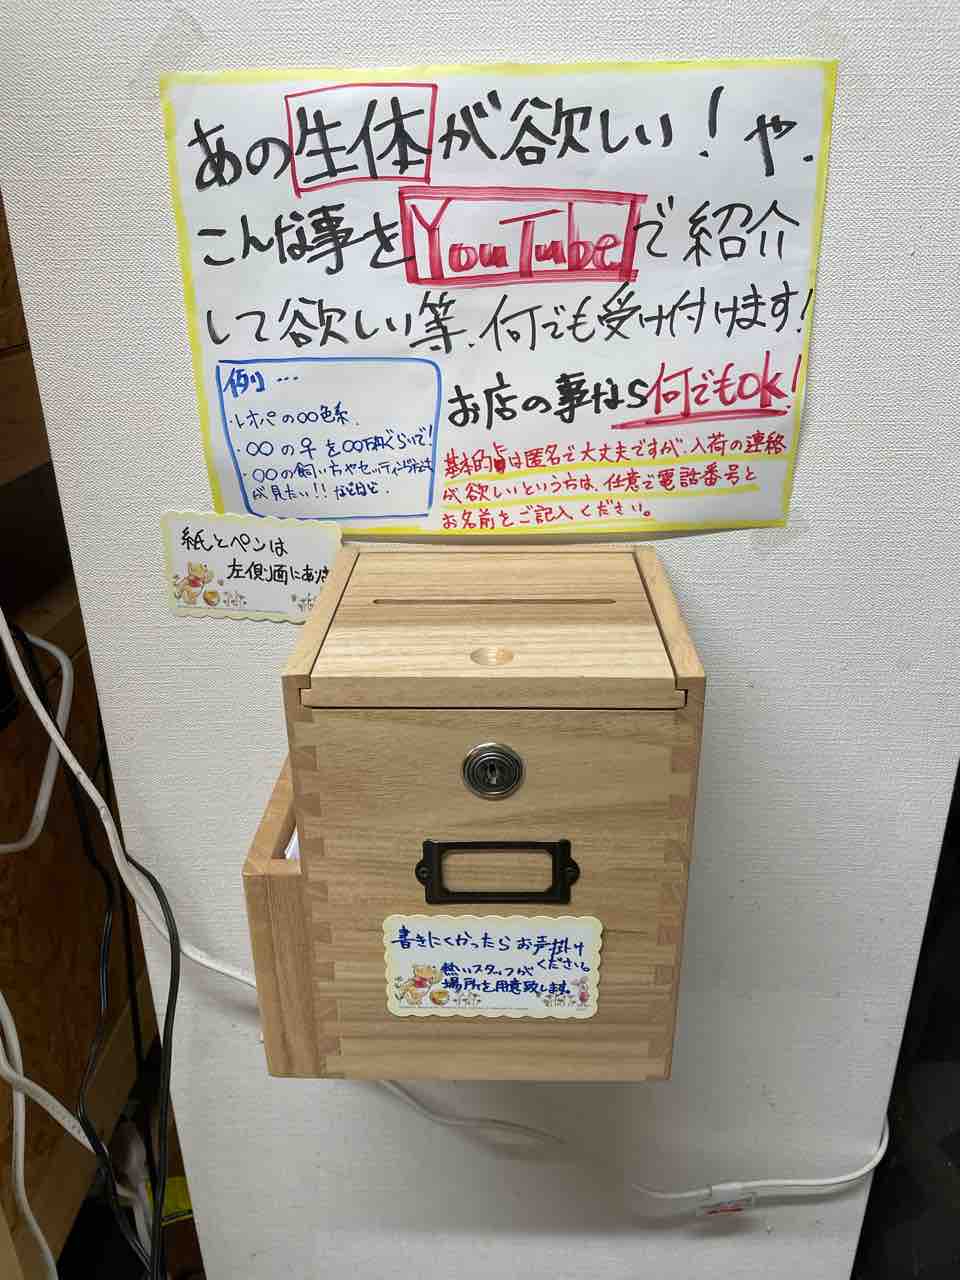 あの生体が欲しい！や、
こんな事をYouTubeで紹介
して欲しい等、何でも受け付けます！
お店の事なら何でもok！
例）…
・レオパの〇〇色系、
・〇〇の♀を〇〇万円ぐらいで！
・〇〇の飼い方やセッティング方法
が見たい！！などなど、
基本的には匿名で大丈夫ですが、入荷の連絡
が欲しいという方は、任意で電話番号と
お名前をご記入ください。
紙とペンは
左側面にあ
書きにくかったらお声掛け
ください。
熱いスタッフが
場所を用意致します。